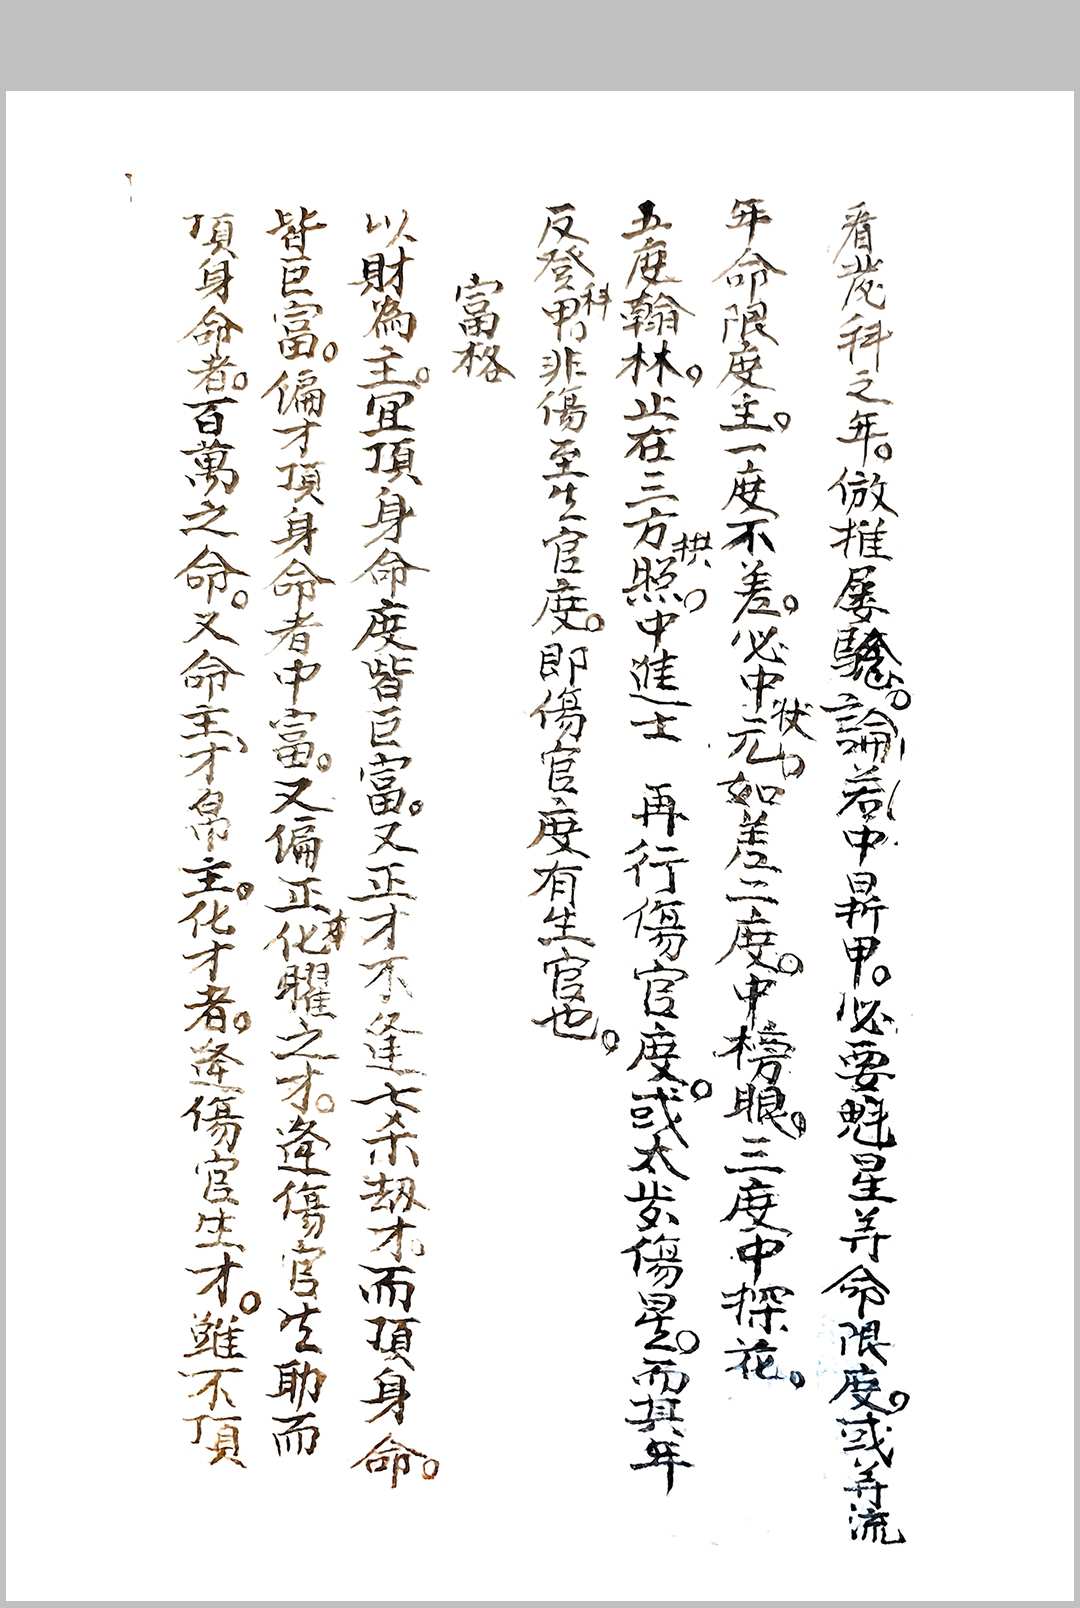 看歲科之年。倣推屢驗。論若中鼎甲。必要魁星并命限度。或并流
年命限度主。一度不差。必中狀元。如差二度。中榜眼。三度中探花。
五度翰林。止在三方拱照。中進士 再行傷官度。或太歲傷星。而其年
反登科甲。非傷至生官度。即傷官度有生官也。
富格
以財為主。宜頂身命度皆巨富。又正才不逢七杀劫才。而頂身命。
皆巨富。偏才頂身命者中富。又偏正化曜之才。逢傷官生助而
頂身命者。百萬之命。又命主、才帛主。化才者。逢傷官生才。雖不頂